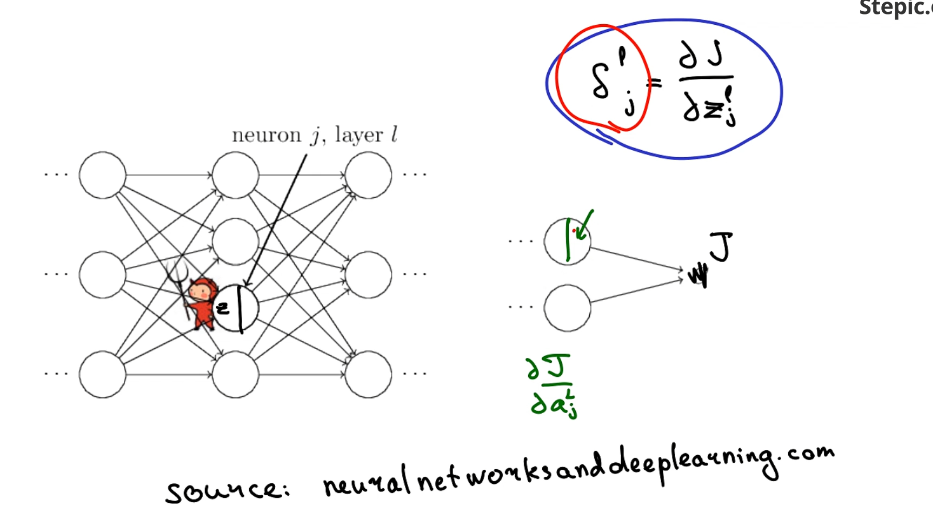 Stepic.
δ^l_j = ∂J / ∂z^l_j
neuron j, layer l
... ...
... J
... ...
z
...
∂J / ∂a^L_j
... ...
source: neuralnetworksanddeeplearning.com